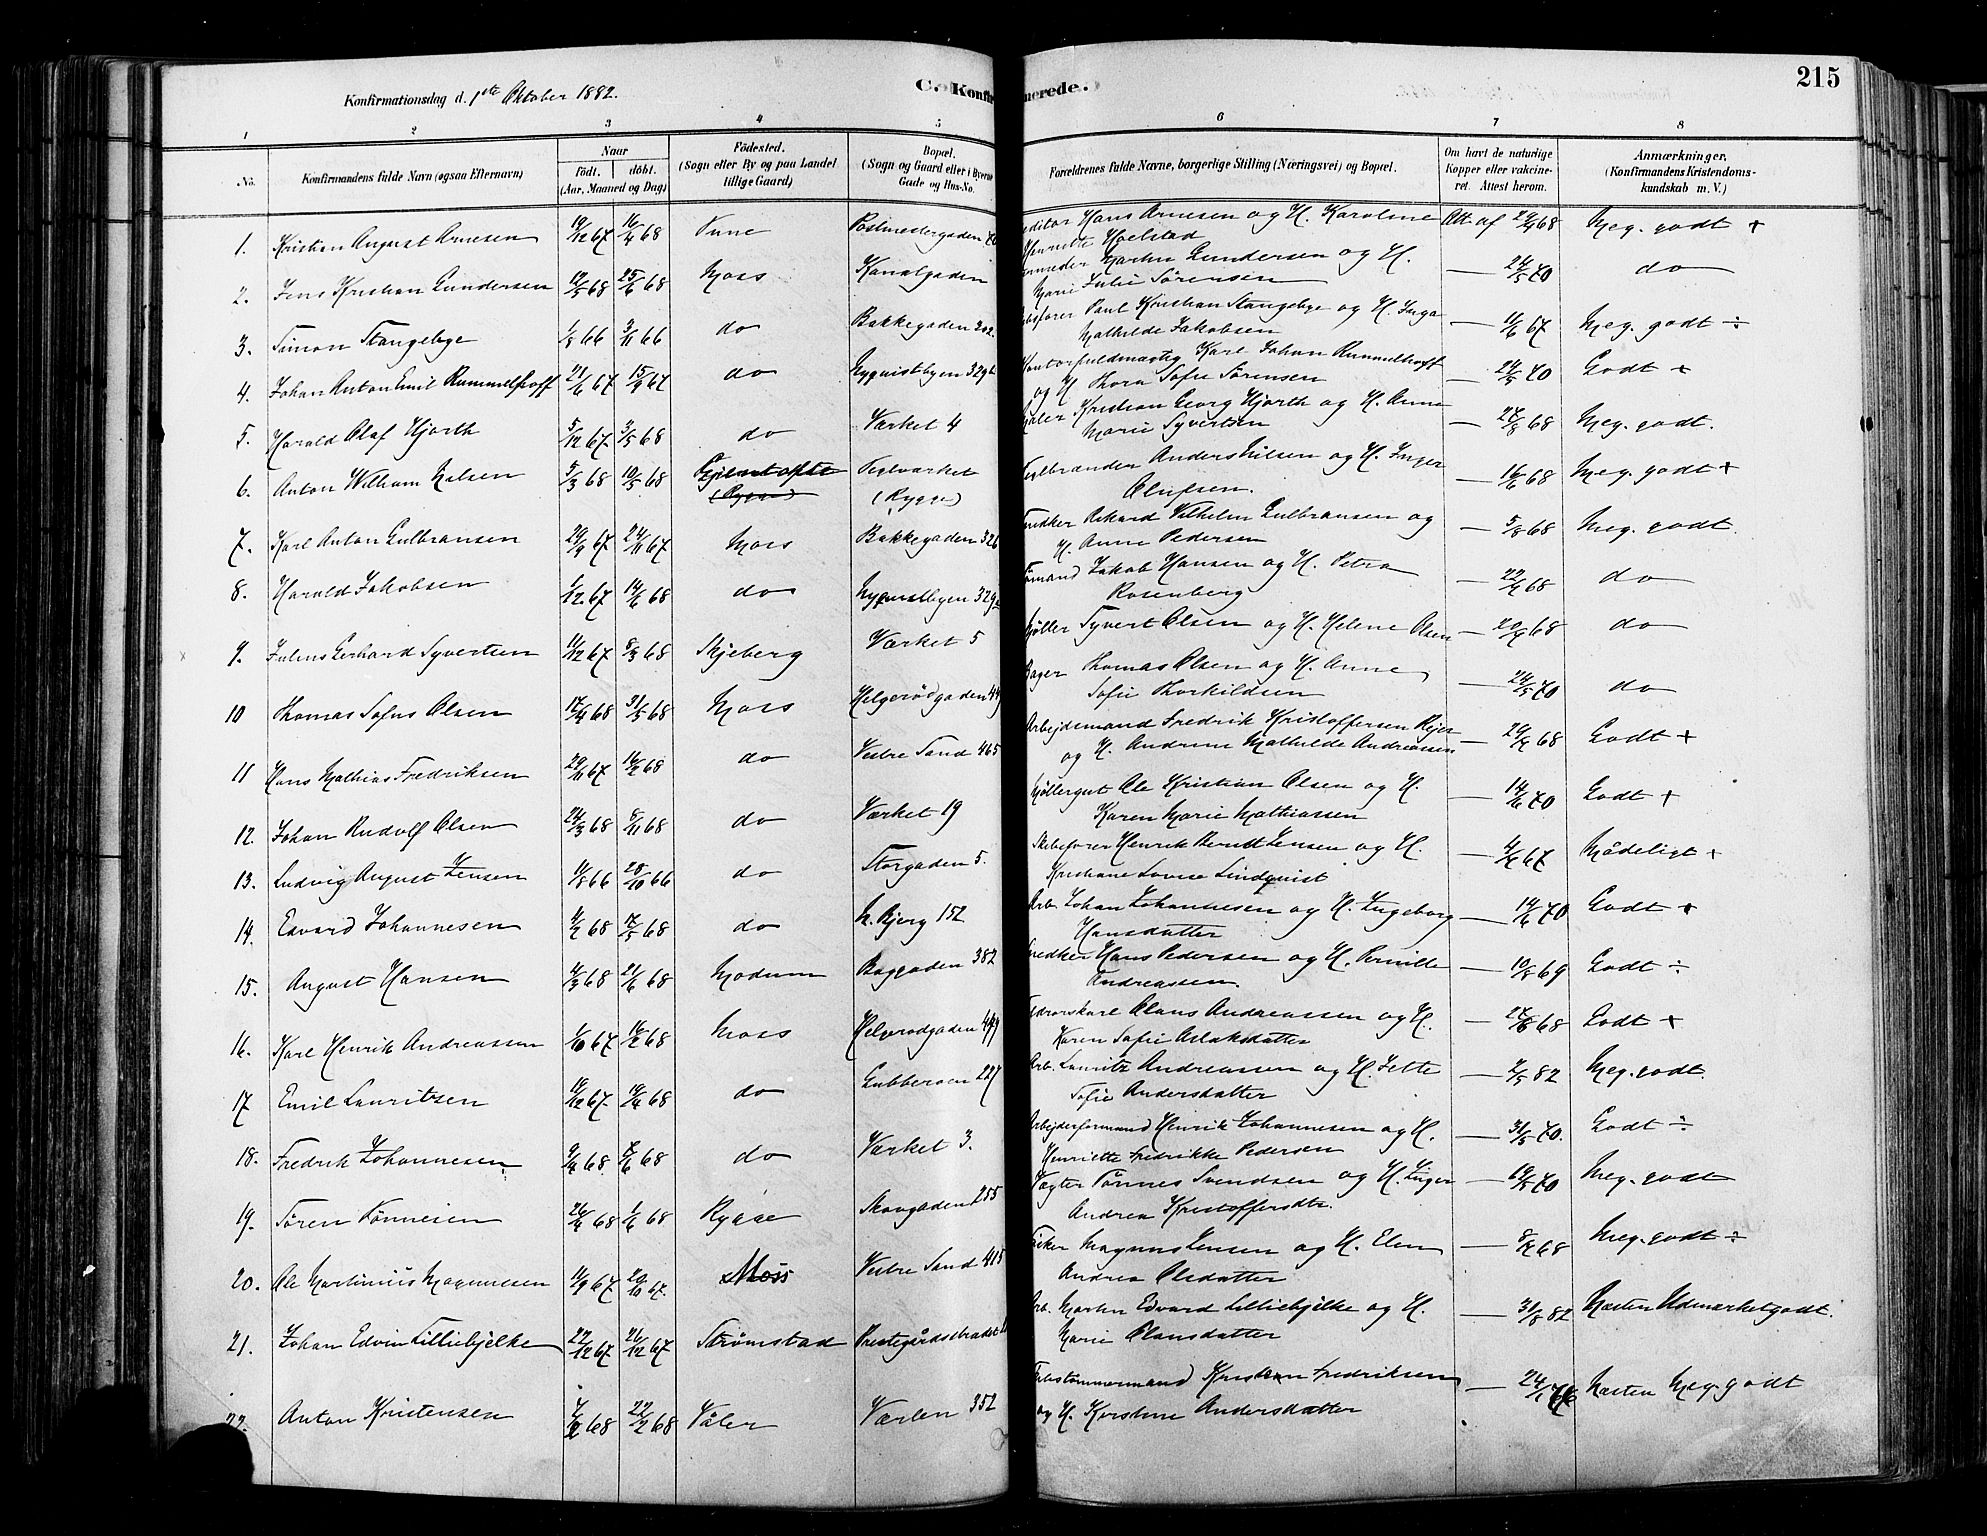 215
Konfirmationsdag d. 1ste Oktober 1882.
C. Konfirmerede.
1 2 3 4 5 6 7 8
No. Konfirmandens fulde Navn (ogsaa Efternavn)
Naar
födt. döbt.
(Aar, Maaned og Dag)
Födested.
(Sogn eller By og paa Landet
tillige Gaard)
Bopæl.
(Sogn og Gaard eller i Byerne
Gade og Hus-No.
Forældrenes fulde Navne, borgerlige Stilling (Næringsvei) og Bopæl.
Om havt de naturlige
Kopper eller vakcine-
ret. Attest herom.
Anmærkninger.
(Konfirmandens Kristendoms-
kundskab m. V.)
1. Kristian August Arnesen 19/12 67 16/4 68 Tune Postmestergaden Hans Arnesen og H. Karoline Att af 29/4 68 Meg. godt +
Henriette Hoelstad
2. Jens Kristian Gundersen 12/5 68 25/6 68 Moss Kanalgaden Martin Gundersen og H. — 24/5 70 do
Marie Julie Sørensen
3. Simon Stangebye 1/8 66 3/11 66 do Bakkegaden 302 Paul Kristian Stangebye og H. Inga — 11/6 67 Meg. godt ÷
Mathilde Jakobsen
4. Johan Anton Emil Rummelhoff 21/6 67 15/9 67 do Nyquistbyen 329 Kontorfuldmægtig Karl Johan Rummelhoff — 24/5 70 Godt +
og H. Thora Sofie Sørensen
5. Harald Olaf Hjorth 5/12 67 3/5 68 do Værket 4 Maler Kristian Georg Hjorth og H. Anne — 27/8 68 Meg. godt.
Marie Syvertsen
6. Anton Wilhelm Nilsen 5/3 68 10/5 68 (Rygge) Teglværket Teglbrænder Anders Nilsen og H. Inger — 16/6 68 Meg. godt +
(Rygge) Olufsen.
7. Karl Anton Gulbransen 29/9 67 24/11 67 Moss Bakkegaden 326 Snedker Rikard Vilhelm Gulbransen og — 5/8 68 Meg. godt
H. Anne Pedersen
8. Harald Jakobsen 1/12 67 14/6 68 do Nyquistbyen 329 Sømand Jakob Hansen og H. Petra — 22/4 68 do
Rosenberg
9. Julius Gerhard Syvertsen 11/12 67 8/3 68 Skjeberg Værket 5 Møller Syvert Olsen og H. Helene Olsen — 20/9 68 do
10 Thomas Sofus Olsen 17/4 68 31/5 68 Moss Helgerødgaden 44 Bager Thomas Olsen og H. Anne — 24/5 70 do
Sofie Thorkildsen
11 Hans Mathias Fredriksen 29/11 67 16/2 68 do Vestre Sand 465 Arbejdsmand Fredrik Kristoffersen Rejer — 29/4 68 Godt +
og H. Andrine Mathilde Andreassen
12. Johan Rudolf Olsen 24/3 68 8/11 68 do Værket 19 Møllergut Ole Kristian Olsen og H. — 14/6 70 Godt +
Karen Marie Mathiassen
13. Ludvig August Jensen 11/8 66 28/10 66 do Storgaden 5. Skibsfører Henrik Berndt Jensen og H. — 4/6 67 Mådeligt +
Kristiane Lovise Lindquist
14. Edvard Johannesen 11/2 68 17/5 68 do N. Bjerg 152 Arb. Johan Johannesen og H. Ingeborg — 14/6 70 Godt +
Hansdatter
15. August Hansen 4/3 68 21/6 68 Modum Baggaden 382 Snedker Hans Pedersen og H. Pernille — 10/8 69 Godt ÷
Andreassen.
16. Karl Henrik Andreassen 1/10 67 16/2 68 Moss Helgerødgaden 449 Claus Andreassen og H. — 27/8 68 Godt +
Karen Sofie Aslaksdatter
17 Emil Lauritzen 19/12 67. 19/4 68 do Gubberoen 227 Arb. Lauritz Andreassen og H. Jette — 2/5 82 Meg. godt.
Sofie Andersdatter
18. Fredrik Johannesen 9/4 68 7/6 68 do Værket 3. Arbejderformand Henrik Johannesen og H. — 31/5 70. Godt ÷
Henriette Fredrikke Pedersen
19. Søren Tønnesen 26/4 68 1/6 68 Rygge Skovgaden 255 Vægter Tønnes Svendsen og H. Inger — 19/5 70 Meg. godt
Andrea Kristoffersdtr.
20. Ole Martinius Magnussen 11/9 67 20/10 67. Moss Vestre Sand 415 Magnus Jensen og H. Elen — 8/4 68 Meg. godt ÷
Andrea Olsdatter
21. Johan Edvin Lilliehjelke 22/12 67 26/12 67 Strømstad Prestegårdsstrædet Arb. Martin Edvard Lilliehjelke og H. — 31/8 82 Næsten Udmærket godt.
Marie Olausdatter
22. Anton Kristensen 7/2 68 22/2 68 Våler Værlen 352 Skibstømmermand Kristian Fredriksen — 24/1 76 Næsten Meg. godt
og H. Kirstine Andersdatter